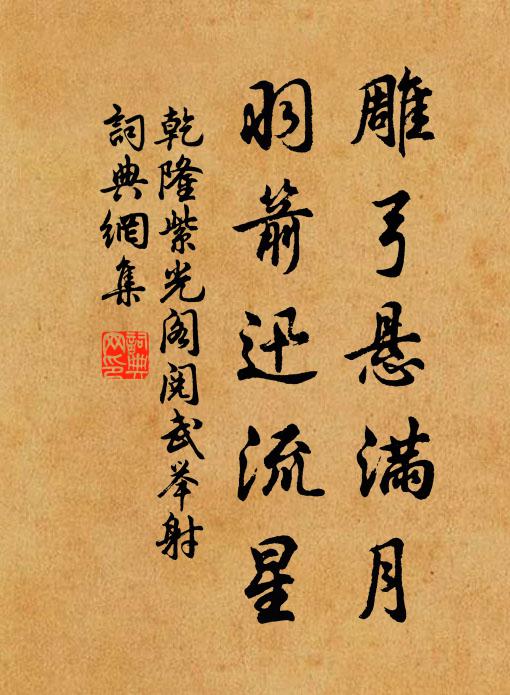 雕弓悬满月
羽箭迅流星
乾隆紫光阁阅武举射
詞典網集
詞典
网印